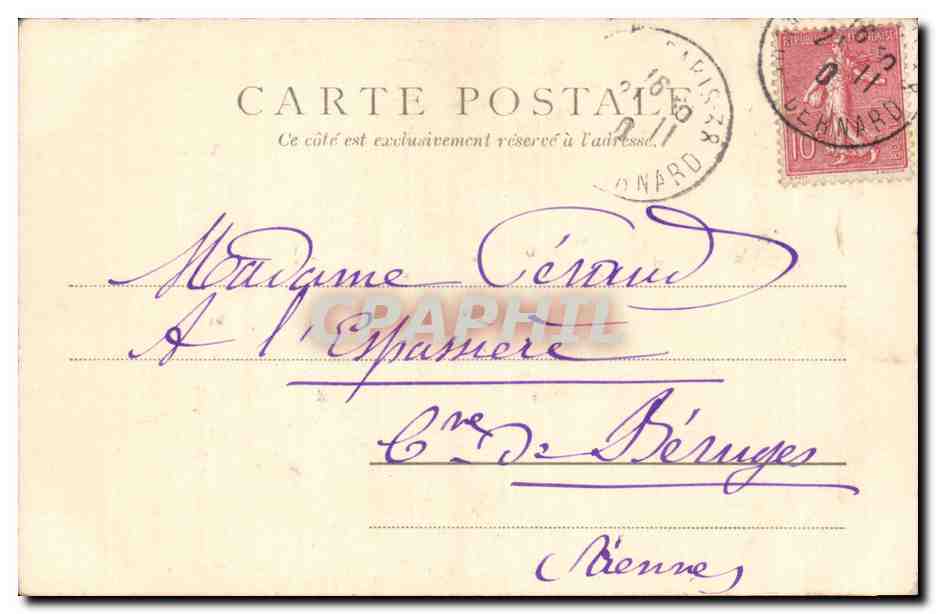 CARTE POSTALE
Ce côté est exclusivement réservé à l'adresse.
PARIS-78
16
11
RNARD
10
Madame Péraud
A l'Espassière
Cne de Béruges
Vienne
CPAPHIL